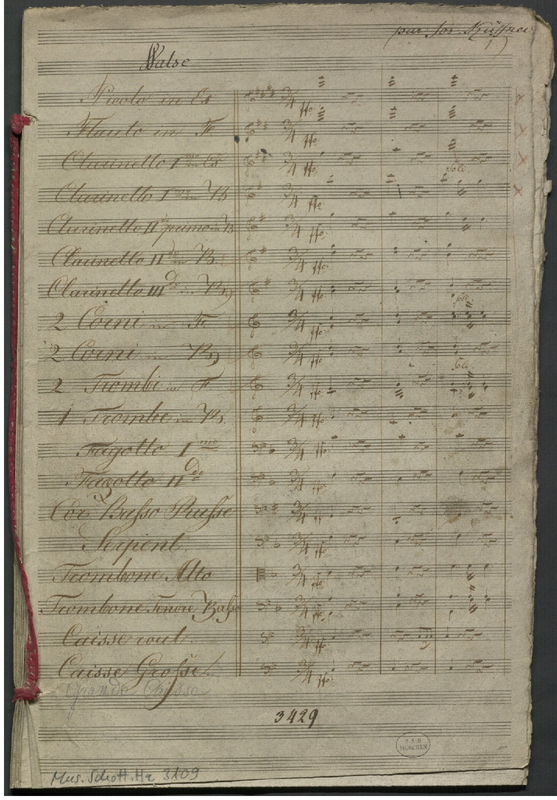 par Jos. Küffner
Walse
Picolo in Es
Flauto in F
Clarinetto I mo in Es
Clarinetto I mo in B
Clarinetto II primo in B
Clarinetto II do in B
Clarinetto III in B
2 Corni in F
2 Corni in B
2 Trombe in F
1 Trombe in B
Fagotto I mo
Fagotto II do
Cor Basso Russe
Serpent
Trombone Alto
Trombone Tenore Basso
Caisse roul.
Caisse Grosse
3429
MÜNCHEN
Mus. Schott. Ha 3109